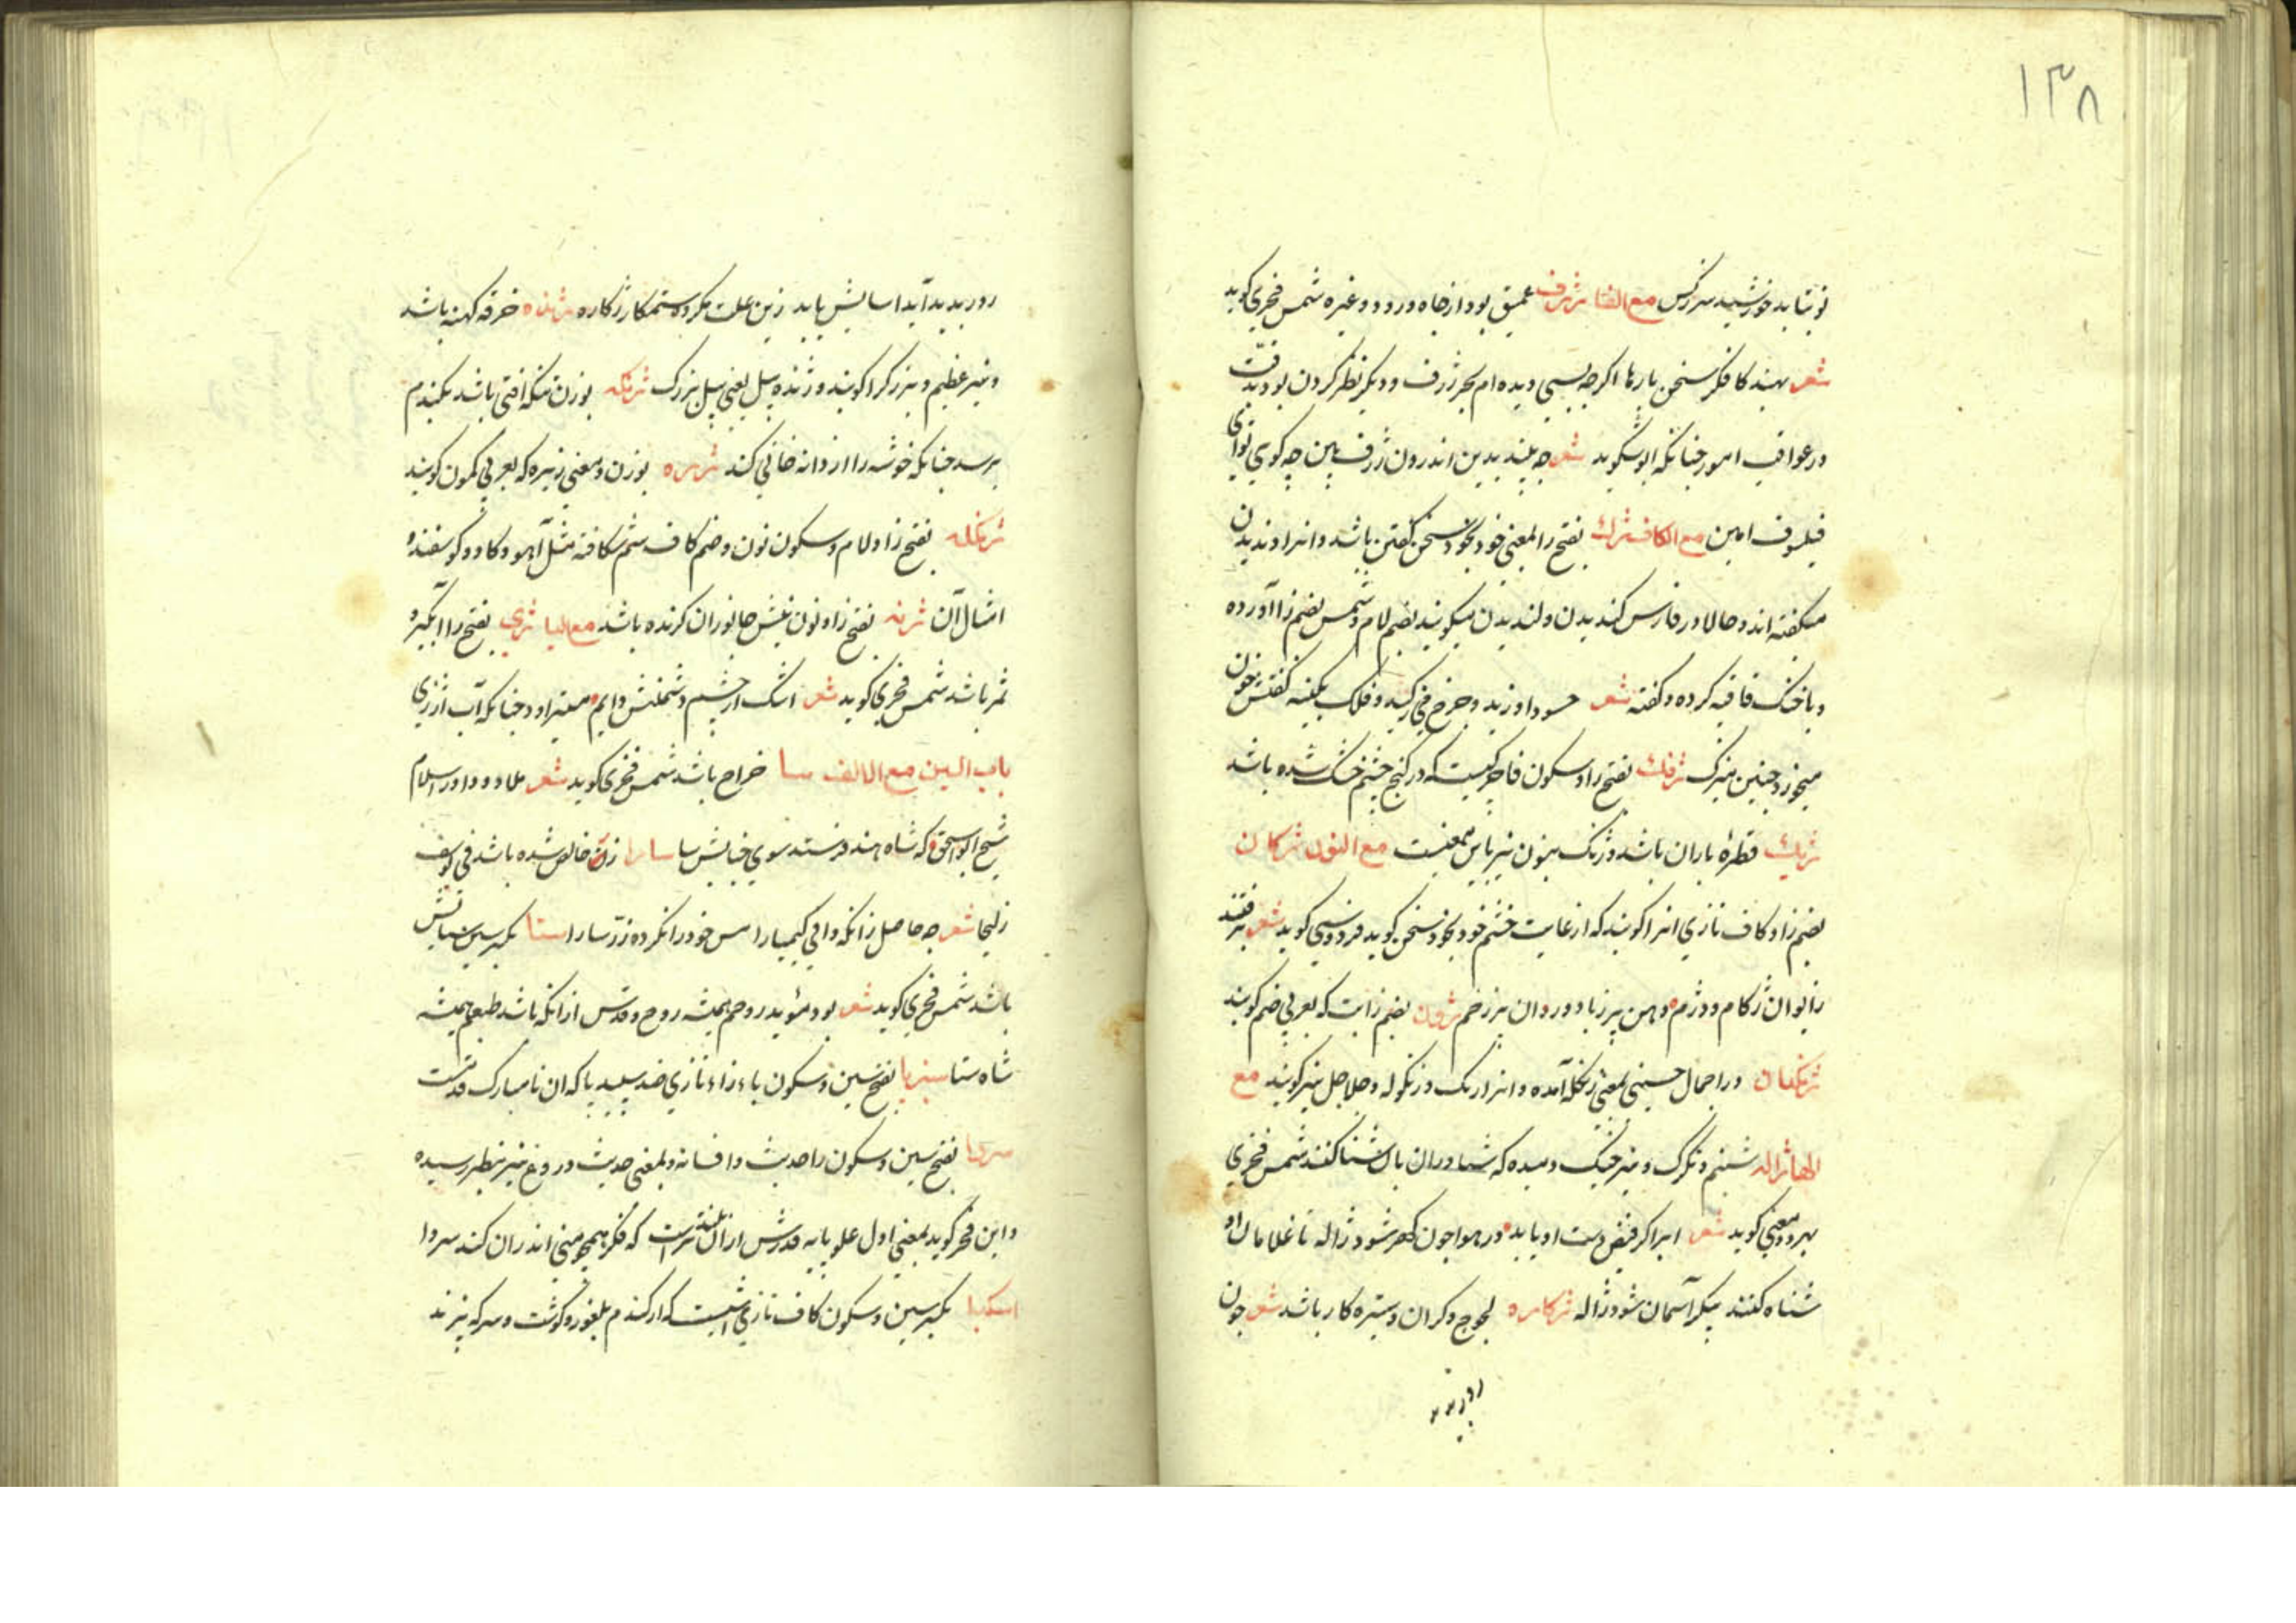 ۱۳۸
نوبتابد خورشید سرزکس مع الفا ژرف عمیق بود از چاه و رود و غیره شمس فخری کوید
شعر بهند کا فکر سخن بارها اکرچه بسی دیده ام بحر ژرف و دیکر نظر کردن بود بدقت
در عواقب امور چنانکه ابو شکوید شعر چه بیند بدین اندرون ژرف بین چه کوی توای
فیلسوف امین مع الکاف ژک بفتح زا بمعنی خود بخود سخن کفتن باشد و انرا دندیدن
میکفته اند و حالا در فارس کندیدن و لندیدن میکویند بضم لام و شمس بضم زا آورده
و با خشک قافیه کرده و کفته شعر حسود او زید و چرخ فی و فلک بکینه کفتش خون
میخور و چنین میزک ژفک بفتح زا و سکون فا چرکیست که در کنج چشم خشک شده باشد
ژیک قطره باران باشد و ژنک بنون نیز باین معنیست مع النون ژکان
بضم زا و کاف تازی انرا کویند که از غایت خشم خود بخود سخن کوید فردوسی کوید شعر برفتند
زایوان ژکام و دژم دهن پر زباد و روان پر زخم ژون بضم زا بت که بعربی صنم کویند
ژنکدان در اجمال حسینی بمعنی زنکله آمده و انرا زنک و زنکوله و جلاجل نیز کویند مع
الها ژاله شبنم و تکرک و نیز خیک دمیده که شناوران بان شنا کنند شمس فخری
بهر دو معنی کوید شعر ابر اکر فیض دست او یابد در هوا چون کهر شود ژاله تا غلامان او
شناه کنند پیکر آسمان شود ژاله ژکاره لجوج و کران و ستیزه کار باشد شعر چون
رور بدید
رور بدید آید اسایش یابد زین علت مکروه ستمکار ژکاره ژنده خرقه کهنه باشد
و نیز عظیم و بزرک را کویند و ژنده پیل یعنی پیل بزرک ژنکه بوزن منکه افتی باشد بکندم
برسد چنانکه خوشه را از دانه خالی کند ژیره بوزن و معنی زیره که بعربی کمون کویند
ژنکله بفتح زا و لام و سکون نون و ضم کاف سم شکافته مثل آهو و کاو و کوسفند و
امثال آن ژنه بفتح زا و نون نیش جانوران کزنده باشد مع الیا ژی بفتح زا ابکیر و
ثمر باشد شمس فخری کوید شعر اشک از چشم دشمنش دایم میتراود چنانکه آب از ژی
باب السین مع الالف سا خراج باشد شمس فخری کوید شعر ملاد و داور اسلام
شیخ ابو اسحق که شاه هند فرستد سوی جنابش سا سارا زر خالص شده باشد فی یوسف
زلیخا شعر چه حاصل زانکه دانی کیمیا را مس خود را نکرده زر سارا ستا بکسر سین ستایش
باشد شمس فخری کوید شعر بود مؤید روحم همیشه روح و قدس از انکه باشد طبعم همیشه
شاه ستا سبزپا بفتح سین و سکون باء و زاء تازی ضد سپید پا که ان نامبارک قدمست
سروا بفتح سین و سکون را حدیث و افسانه و بمعنی حدیث دروغ نیز بنظر رسیده
و ابن فخر کوید بمعنی اول علو پایه قدرش ازان بلندترست که فکر همچو منی اندران کند سروا
سکبا بکسر سین و سکون کاف تازی اشیست که از کندم بلغور و کوشت و سرکه پزند